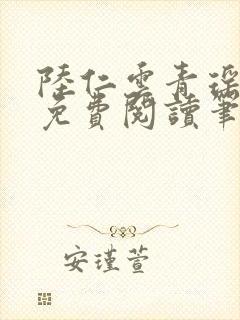 陸仁雲青瑤
免費閱讀筆
安瑾萱